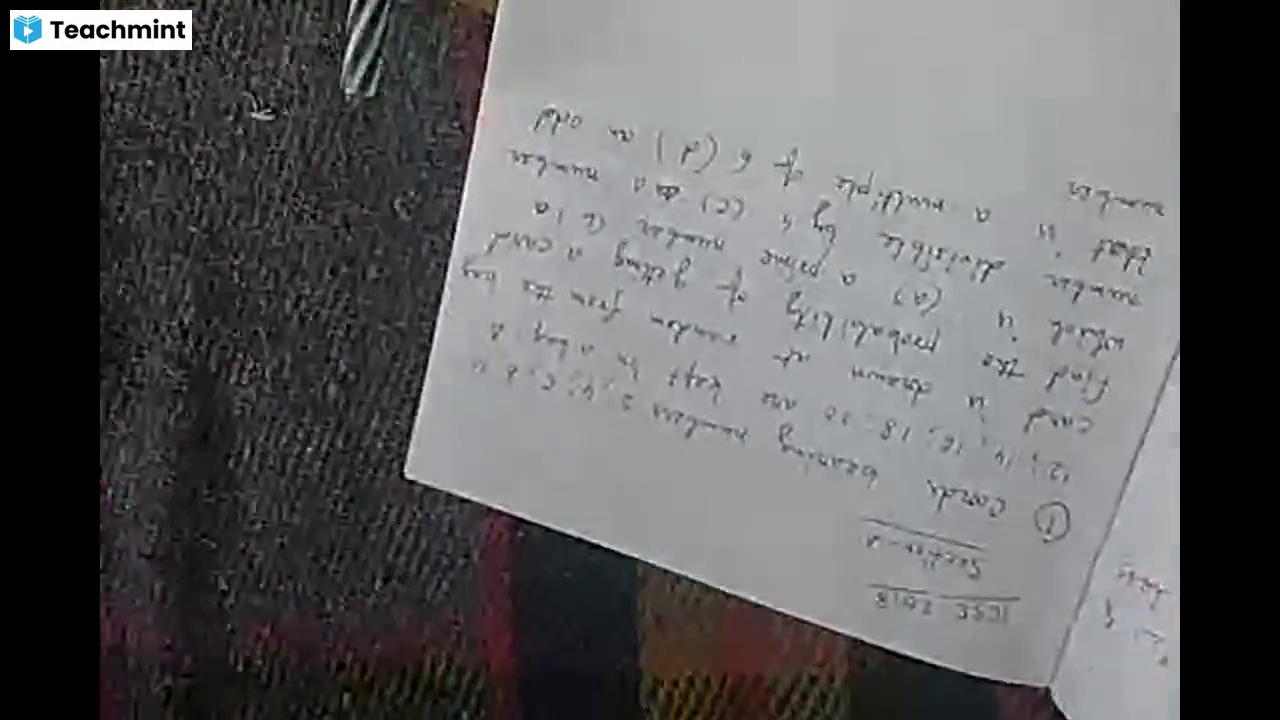 Teachmint
ICSE 2018
Section - A
① Cards bearing numbers 2, 4, 6, 8, 10
12, 14, 16, 18, 20 are kept in a bag. A
card is drawn at random from the bag
Find the probability of getting a card
which is (a) a prime number (b) a
number divisible by 4 (c) a number
that is a multiple of 6 (d) an odd
number